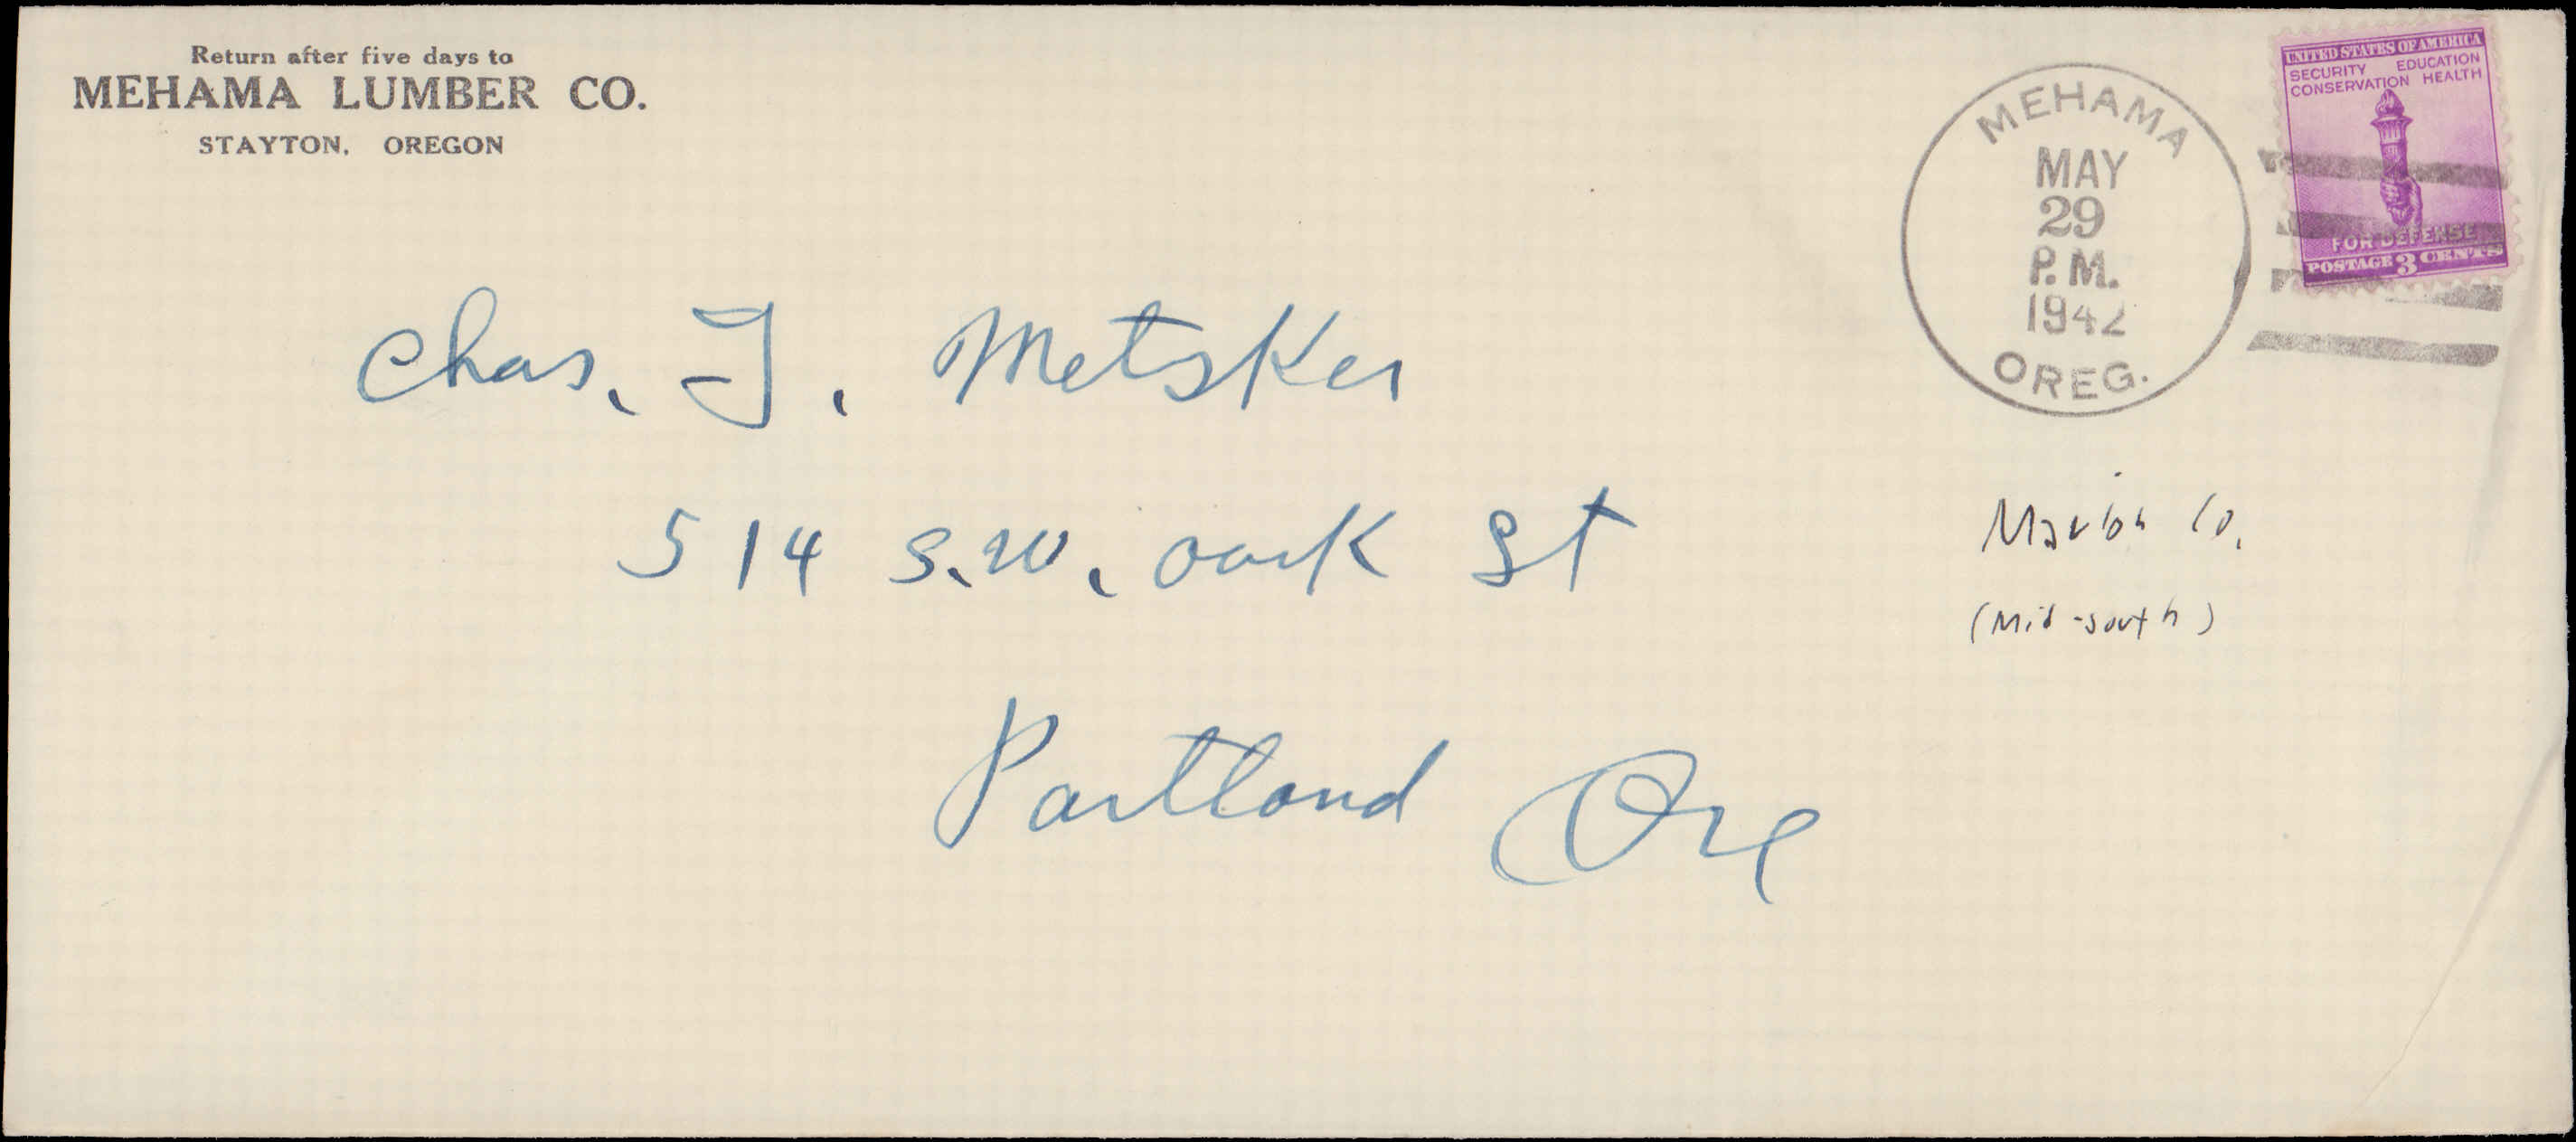 Return after five days to
MEHAMA LUMBER CO.
STAYTON, OREGON
MEHAMA
MAY
29
P.M.
1942
OREG.
UNITED STATES OF AMERICA
SECURITY EDUCATION
CONSERVATION HEALTH
FOR DEFENSE
POSTAGE 3 CENTS
Chas. F. Metsker
514 S.W. oak St
Portland Ore
Marion Co.
(Mid-south)